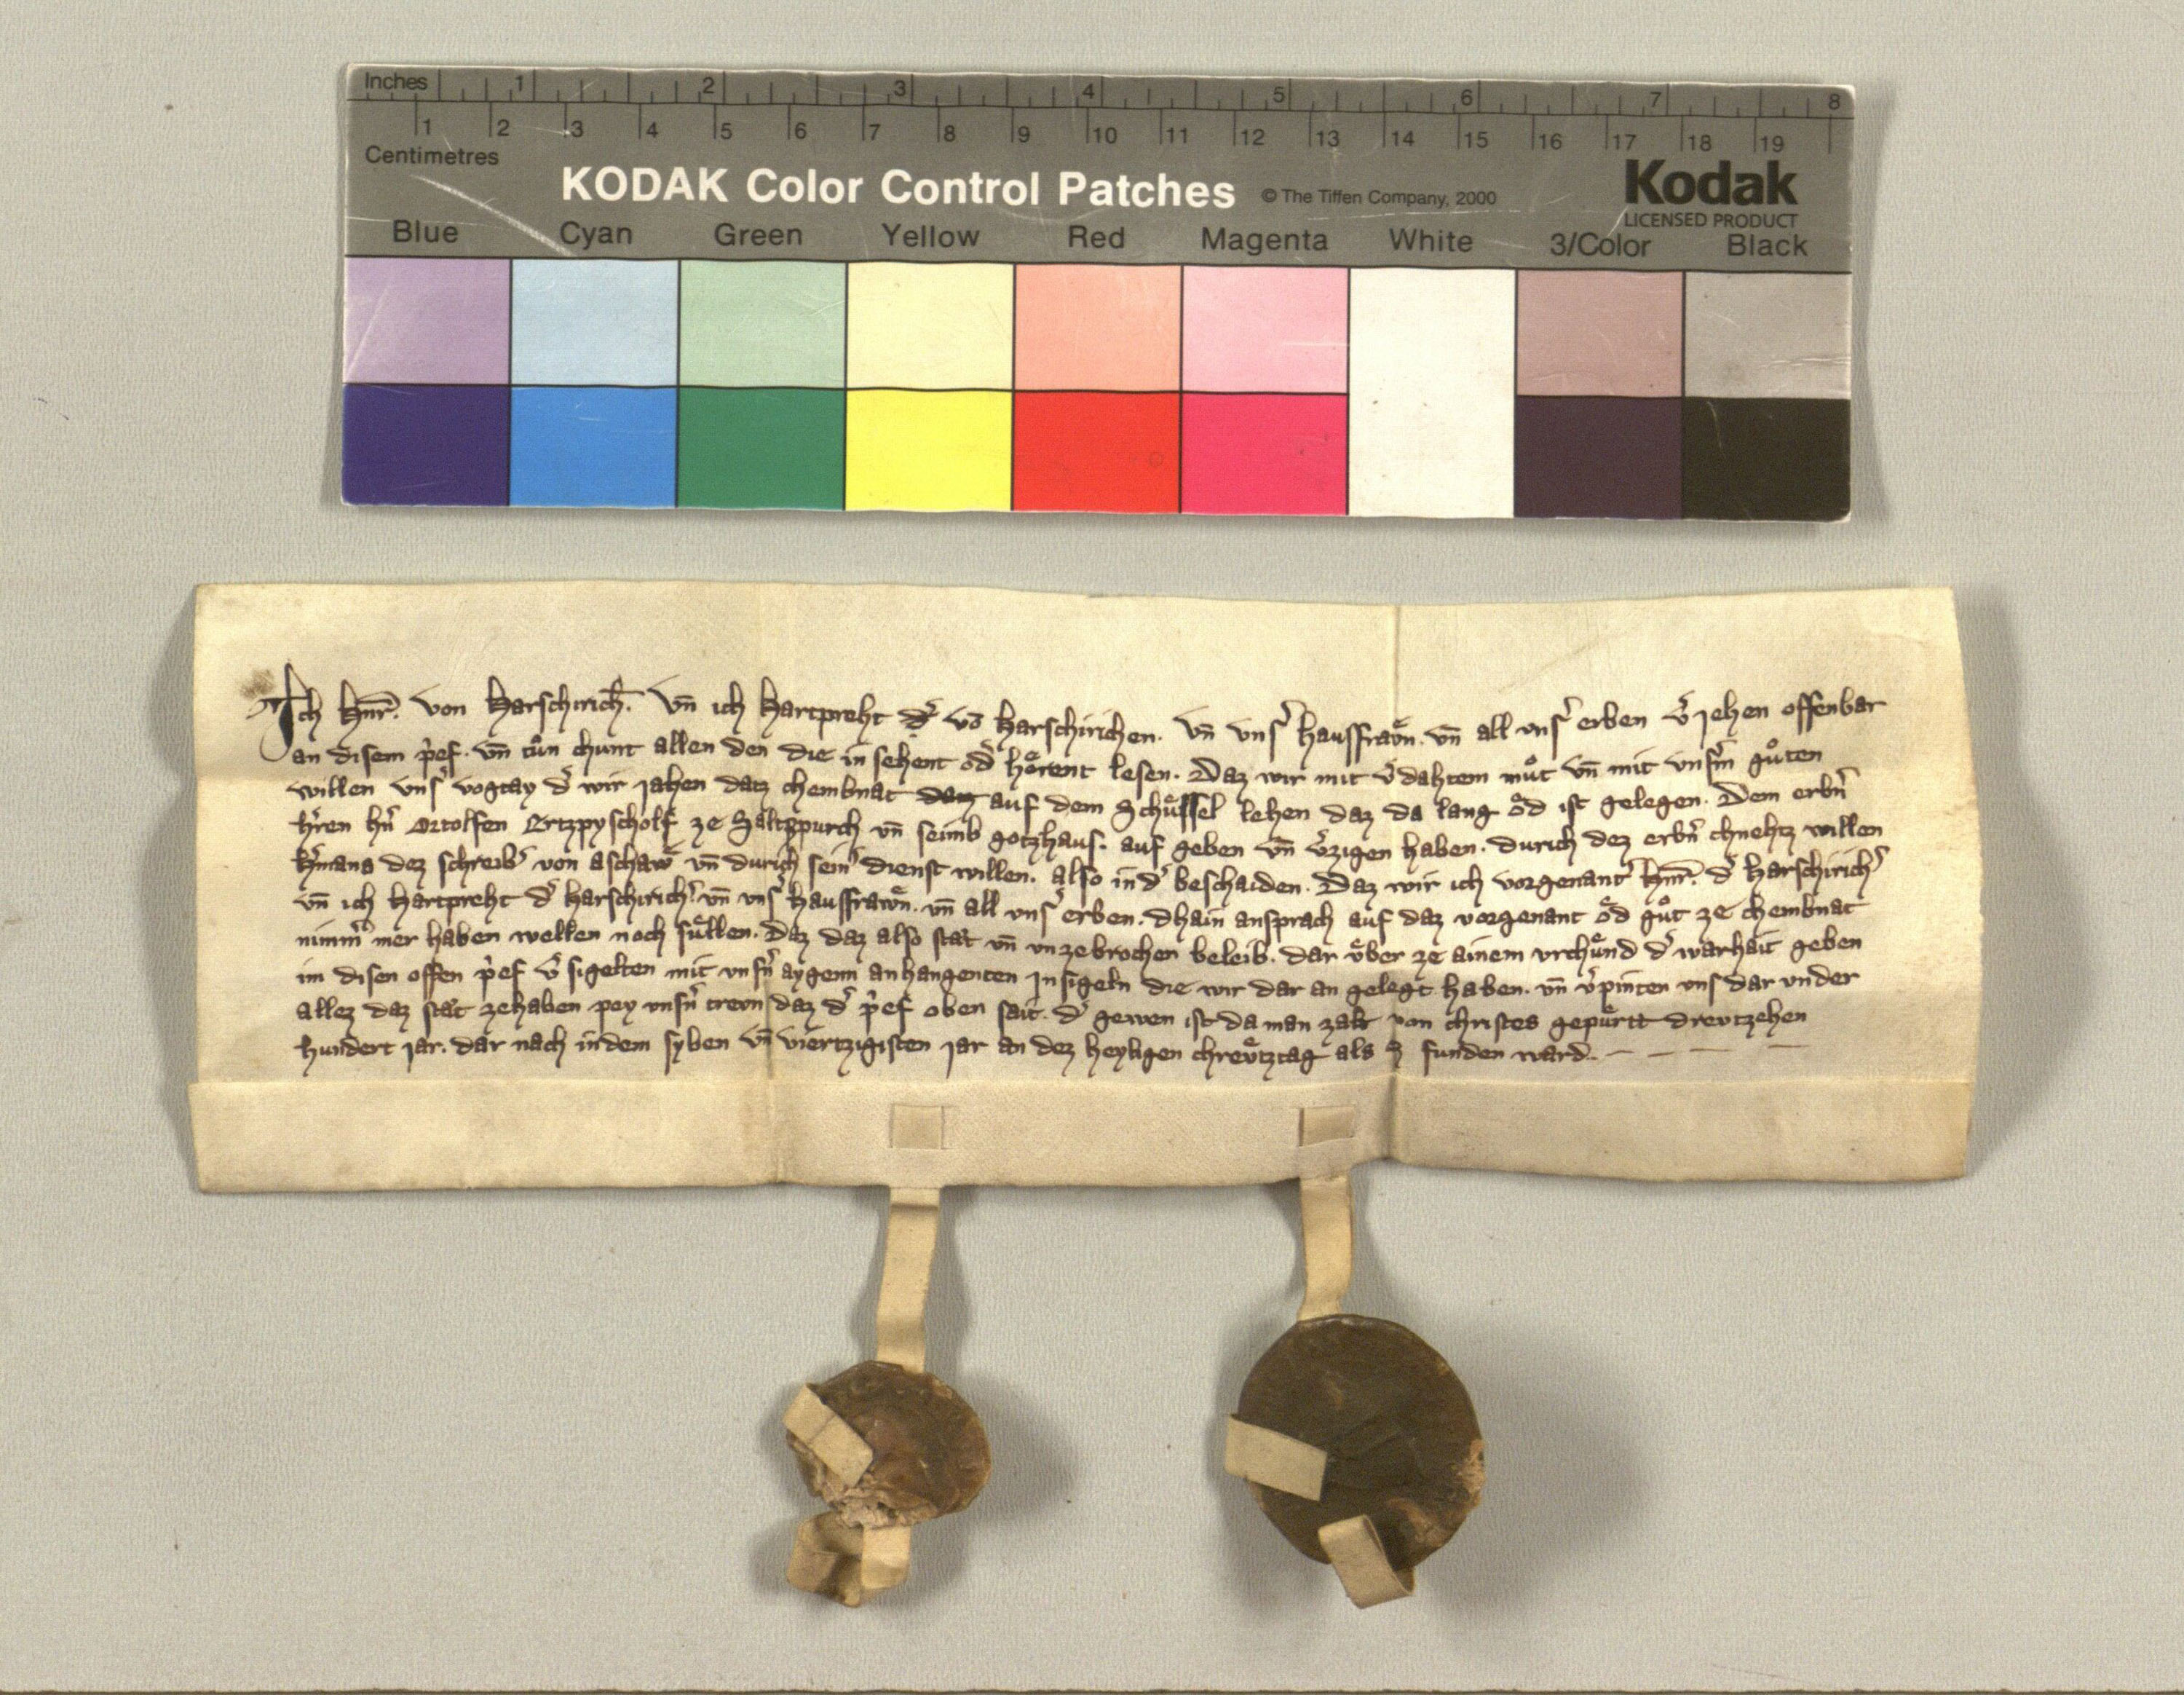 Inches 1 2 3 4 5 6 7 8
1 2 3 4 5 6 7 8 9 10 11 12 13 14 15 16 17 18 19
Centimetres
KODAK Color Control Patches © The Tiffen Company, 2000 Kodak
LICENSED PRODUCT
Blue Cyan Green Yellow Red Magenta White 3/Color Black
Ich von Harschirich. Vn̄ ich Hartpreht vō Harschirichen. Vn̄ vns͛ hausfraẘn. vn̄ all vns͛ erben v͛iehen offenbar
an disem p͛ef. vn̄ tůn chunt allen den die in sehent od͛ hoͤrent lesen. Daz wir mit v͛dahtem můt vn̄ mit vnsm͛ gůten
willen vns͛ vogtay d͛ wir jahen datz chembnat auf dem Schuͤssel lehen daz da lang oͤd ist gelegen. Dem erbn͛
h͛ren hn͛ Ortolfen Ertzpyscholf ze Saltzpurch vn̄ seimb gotzhaus. auf geben vn̄ v͛zigen haben. durich dez erbn͛ chnehtz willen
h͛mans dez schreib͛ von aschaw vn̄ durich sein͛ dienst willen. also in d͛ beschaiden. Daz wir ich vorgenant d͛ Harschirich͛
vn̄ ich Hartpreht d͛ Harschirich͛. vn̄ vns͛ hausfrawn. vn̄ all vns͛ erben. dhain ansprach auf daz vorgenant oͤd gůt ze chembnat
nimm͛ mer haben wellen noch suͤllen. Dez daz also stat vn̄ vnzebrochen beleib. dar uͤber ze ainem vrchuͤnd d͛ warhait geben
im disen offen p͛ef v͛sigelten mit vnsn͛ aygenn anhangenten Insigeln die wir dar an gelegt haben. vn̄ v͛pinten vns dar vnder
allez daz stat zehaben pey vnsn͛ trewn daz d͛ p͛ef oben sait. d͛ geben ist da man zalt von christes gepuͤrtt drevtzehen
hundert jar. dar nach in dem syben vn̄ viertzigisten jar an dez heyligen chreutztag als funden ward.